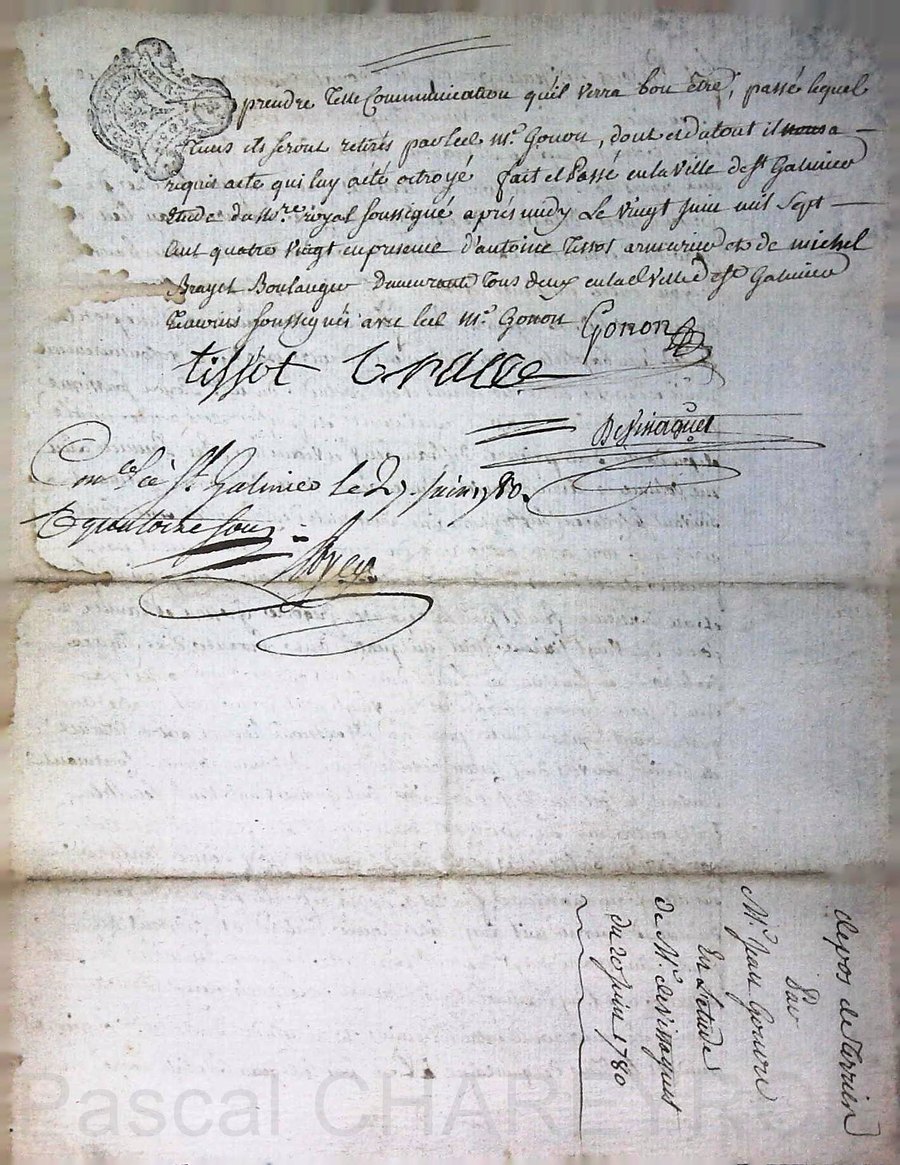 prendre telle Communication qu'il verra bon être, passé lequel
tems ils seront retirés par led. mr. Gonon, dont et du tout il nous a
requis acte qui luy a été octroyé fait et Passé en la ville de st Galmier
étude du no.re royal soussigné aprés midy Le vingt juin mil sept
Cent quatre vingt en presence d'antoine Tissot armurier et de michel
Brayet Boulanger demeurants tous deux en lad. ville de st Galmier
temoins soussignés avec led. mr. Gonon Gonon
tissot
Con.lé à St. Galmier le 27. juin 1780.
quatorze sous
depos de Terrier
Par
Mr. Jean
En L'étude
de Mr.
du 20 juin 1780
Pascal CHAREYRO